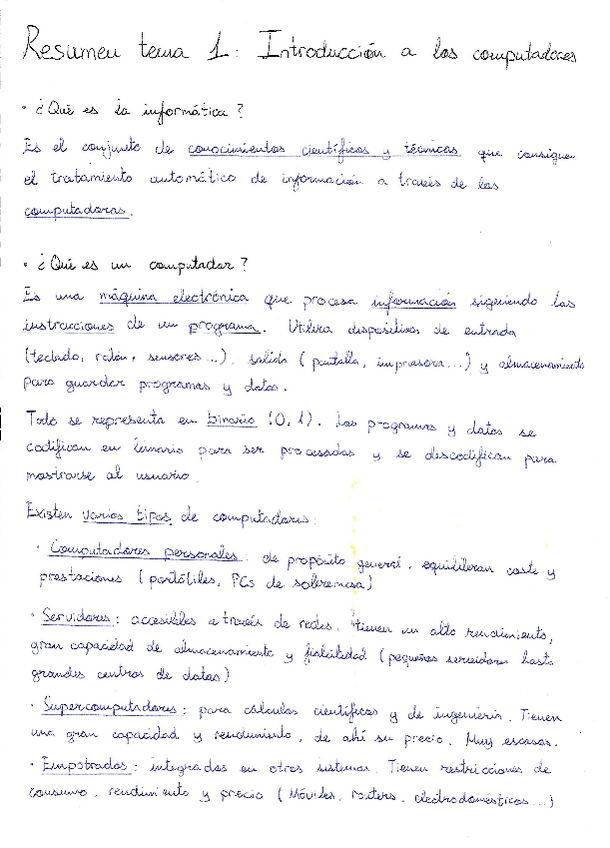 Resumen tema 1: Introducción a los computadores
· ¿Qué es la informática?
Es el conjunto de conocimientos científicos y técnicos que consiguen
el tratamiento automático de información a través de las
computadoras.
· ¿Qué es un computador?
Es una máquina electrónica que procesa información siguiendo las
instrucciones de un programa. Utiliza dispositivos de entrada
(teclado, ratón, sensores...), salida (pantalla, impresora...) y almacenamiento
para guardar programas y datos.
Todo se representa en binario (0, 1). Los programas y datos se
codifican en binario para ser procesados y se descodifican para
mostrarse al usuario.
Existen varios tipos de computadores:
· Computadores personales: de propósito general, equilibran coste y
prestaciones (portátiles, PCs de sobremesa)
· Servidores: accesibles a través de redes, tienen un alto rendimiento,
gran capacidad de almacenamiento y fiabilidad (pequeños servidores hasta
grandes centros de datos)
· Supercomputadores: para cálculos científicos y de ingeniería. Tienen
una gran capacidad y rendimiento, de ahí su precio. Muy escasos.
· Empotrados: integrados en otros sistemas. Tienen restricciones de
consumo, rendimiento y precio (Móviles, routers, electrodomésticos...)